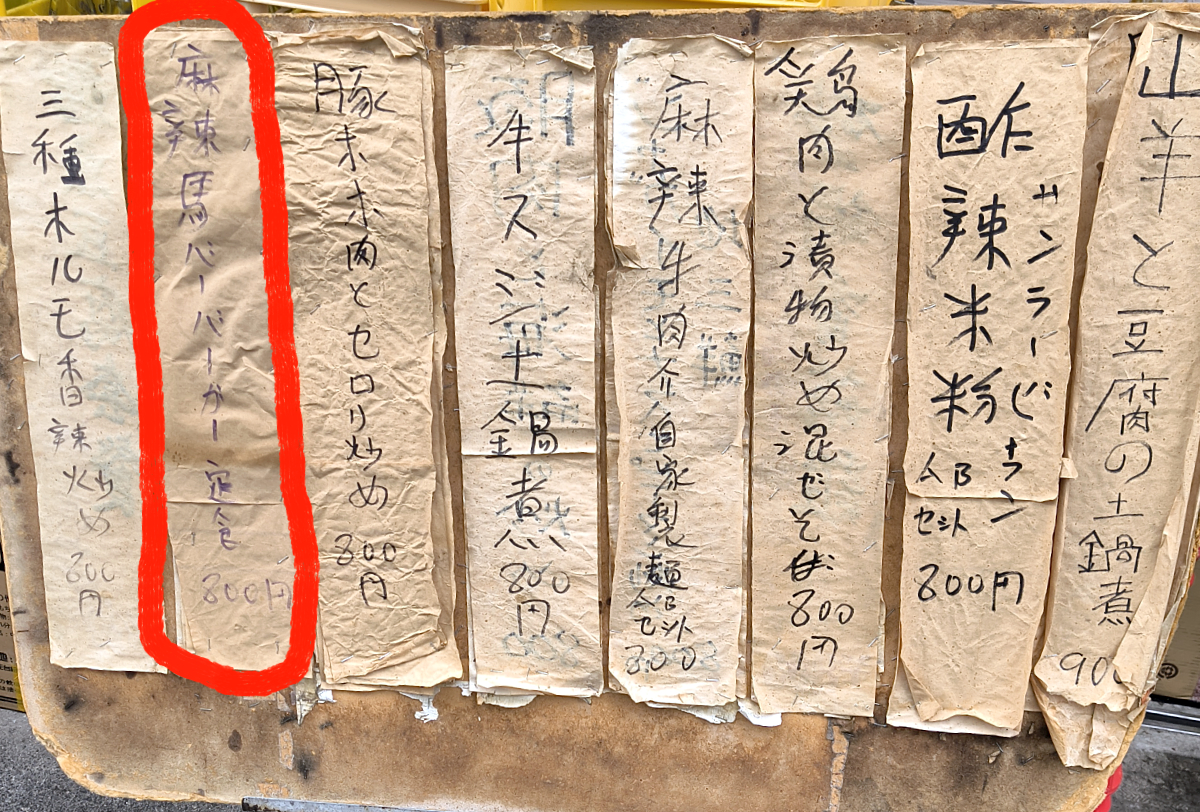 山羊と豆腐の土鍋煮
酢辣米粉
サンラーびフン
ABセット
800円
鶏肉と漬物炒め混ぜそば 800円
麻辣牛肉介自家製麺
ABセット
800
牛スジ土鍋煮 800円
豚ホホ肉とセロリ炒め 800円
麻辣馬バーバーガー定食 800円
三種ホルモ香辣炒め 800円